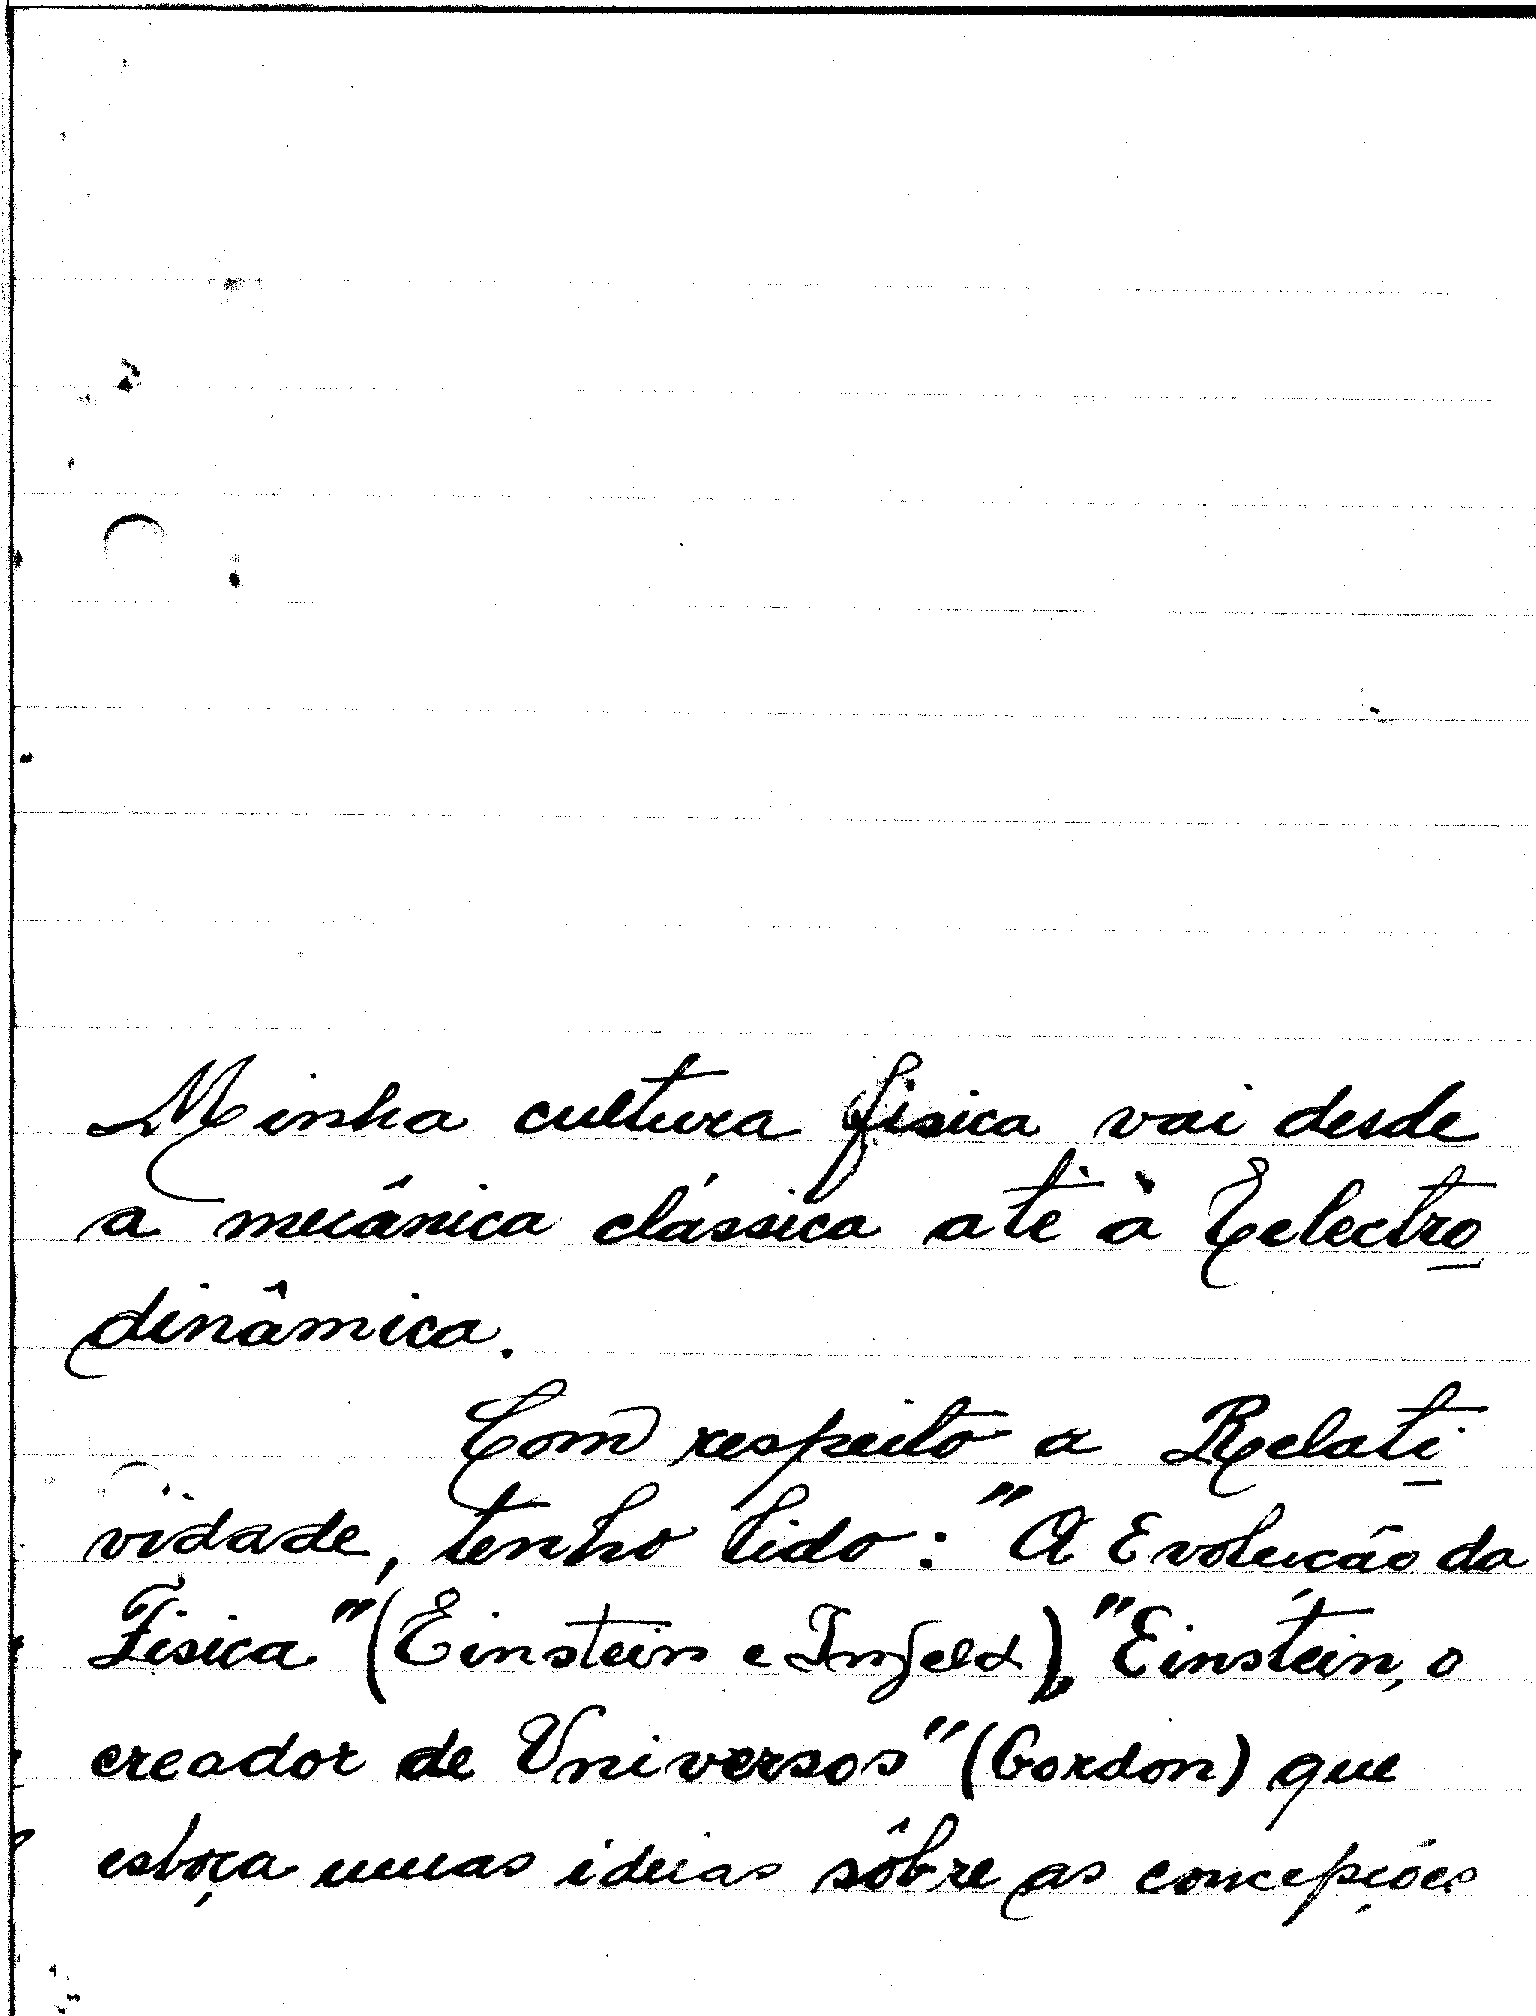 Minha cultura fisica vai desde
a mecânica clássica até à Eelectro
dinâmica.
Com respeito a Relati
vidade, tenho lido: "A Evolução da
Fisica" (Einstein e Infeld), "Einstein, o
creador de Universos" (Gordon) que
esboça umas ideias sôbre as concepções